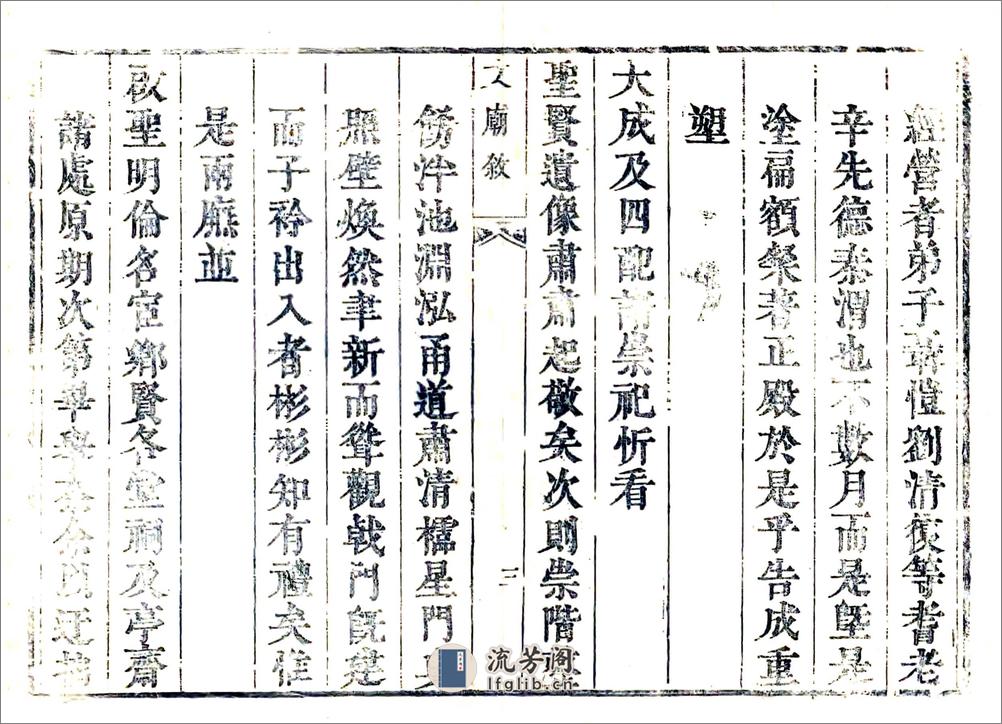 經營者弟子員蔣愷劉清復等耆老
辛先德秦渭也不數月而是墍是
塗扁額粲著正殿於是乎告成重
塑
大成及四配諸崇祀忻看
聖賢遺像肅肅起敬矣次則崇階
文廟敘 三
餝泮池淵泓甬道肅清櫺星門
照壁煥然聿新而聳觀戟門既建
而子衿出入者彬彬知有禮矣惟
是兩廡並
啟聖明倫名宦鄉賢各堂祠及亭齋
諸處原期次第舉
流芳阁
lfglib.cn